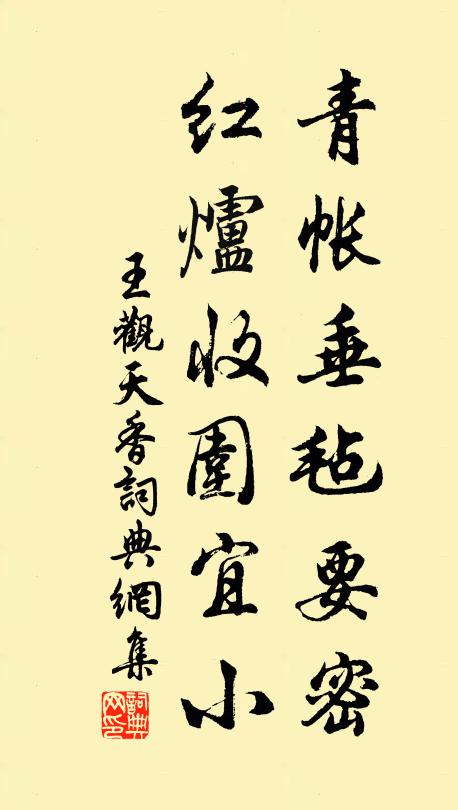 青帐垂毡要密
红爐收围宜小
王觀天香詞典網集
詞典网印